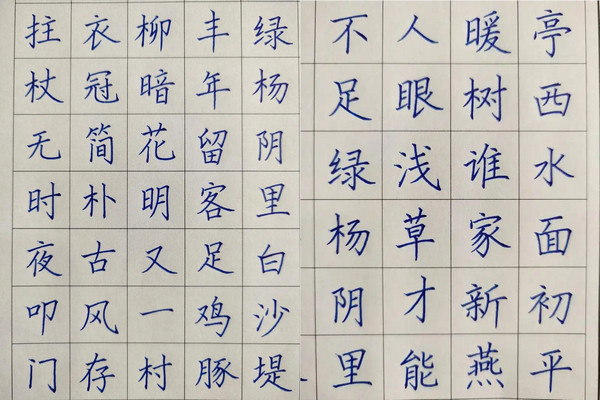 绿杨阴里白沙堤
丰年留客足鸡豚
柳暗花明又一村
衣冠简朴古风存
拄杖无时夜叩门
亭西水面初平
暖树谁家新燕
人眼浅草才能
不足绿杨阴里